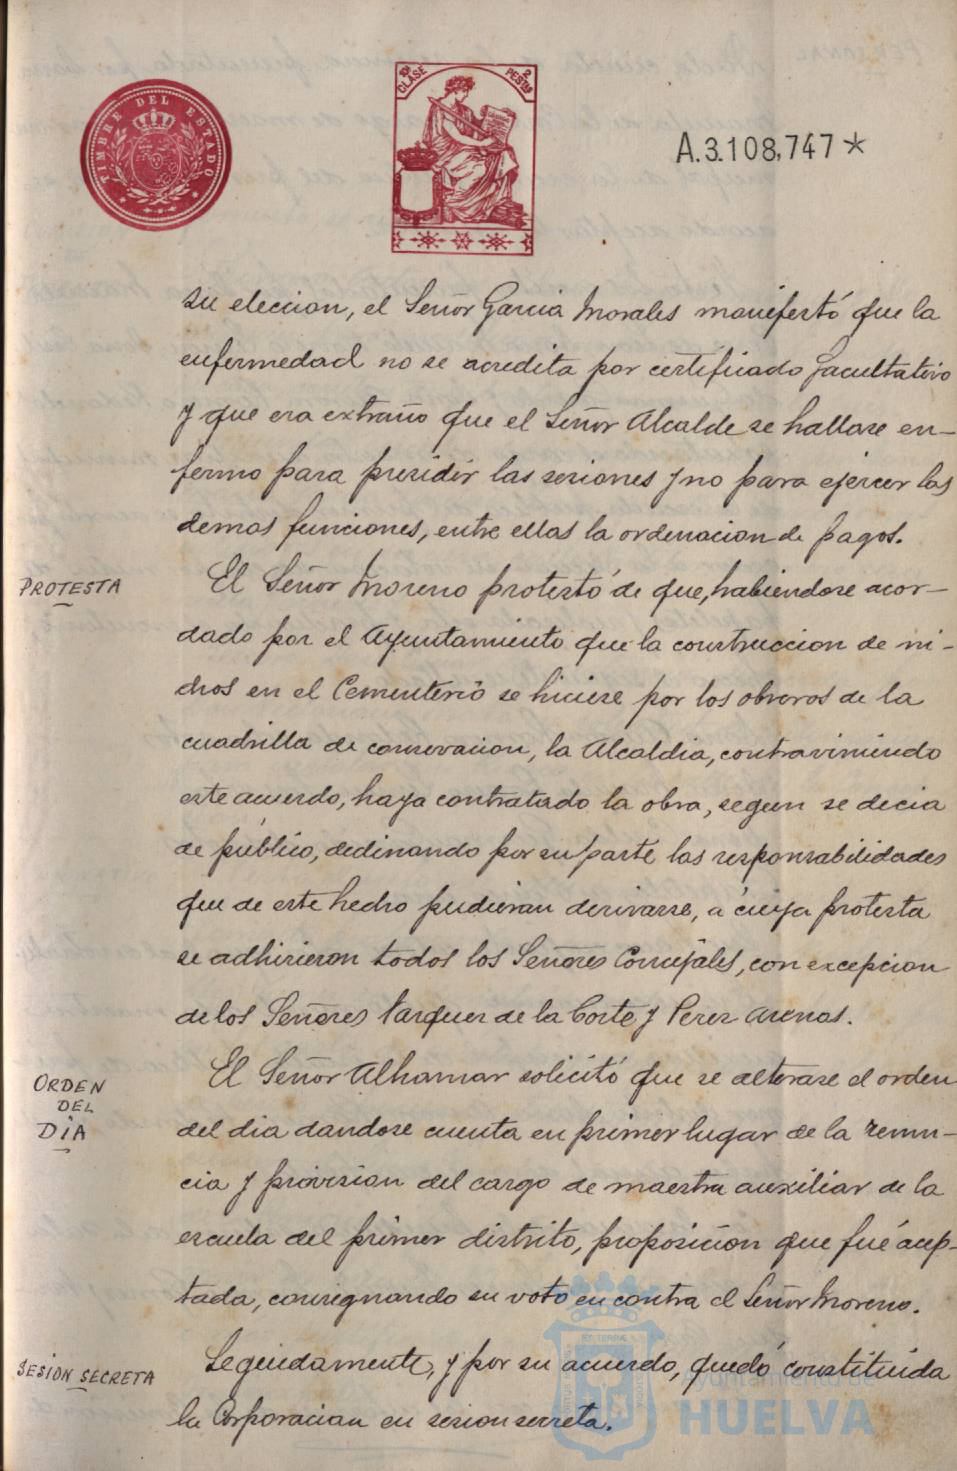 TIMBRE DEL ESTADO
10ª CLASE
2 PESTAS
A.3.108,747*
su eleccion, el Señor Garcia Morales manifestó que la
enfermedad no se acredita por certificado facultativo
y que era extraño que el Señor Alcalde se hallase en-
fermo para presidir las sesiones y no para ejercer las
demas funciones, entre ellas la ordenacion de pagos.
PROTESTA
El Señor Moreno protestó de que, habiendose acor-
dado por el Ayuntamiento que la construccion de ni-
chos en el Cementerio se hiciese por los obreros de la
cuadrilla de conservacion, la Alcaldia, contraviniendo
este acuerdo, haya contratado la obra, segun se decia
de público, declinando por su parte las responsabilidades
que de este hecho pudieran derivarse, á cuya protesta
se adhirieron todos los Señores Concejales, con excepcion
de los Señores Vazquez de la Corte y Perez Arenas.
ORDEN
DEL
DIA
El Señor Alhamar solicitó que se alterase el orden
del dia dandose cuenta en primer lugar de la renun-
cia y provision del cargo de maestra auxiliar de la
escuela del primer distrito, proposicion que fué acep-
tada, consignando su voto en contra el Señor Moreno.
SESION SECRETA
Seguidamente, y por su acuerdo, quedó constituida
la Corporacion en sesion secreta.
Ayuntamiento de
HUELVA